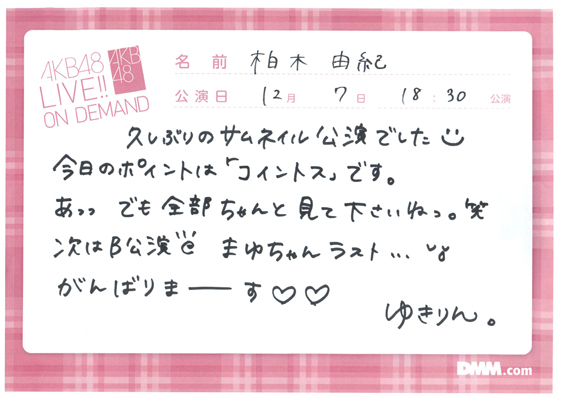 AKB48
LIVE!!
ON DEMAND
AKB
48
名前 柏木 由紀
公演日 12月 7日 18:30 公演
久しぶりのサムネイル公演でした
今日のポイントは「コイントス」です。
あっっ でも全部ちゃんと見て下さいねっ。笑
次はB公演 まゆちゃんラスト…
がんばりまーーす♡♡
ゆきりん。
DMM.com